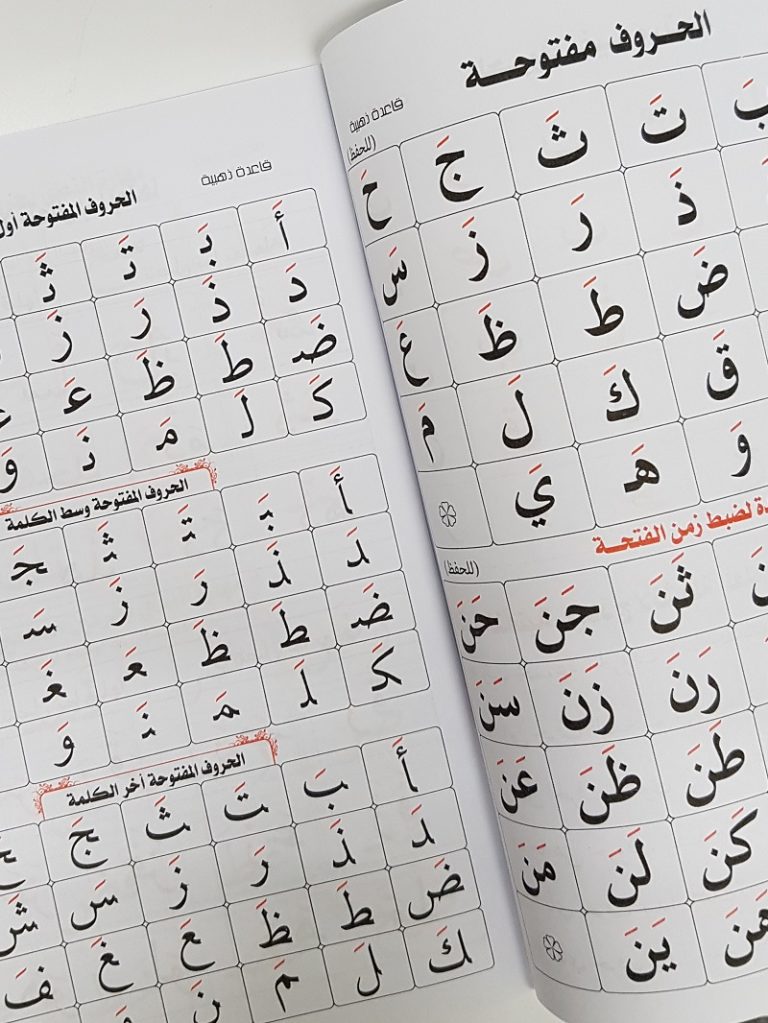 الحروف مفتوحة
قاعدة ذهبية
(للحفظ)
بَ تَ ثَ جَ حَ
ذَ رَ زَ سَ
ضَ طَ ظَ عَ
قَ كَ لَ مَ
وَ هَـ يَ
لضبط زمن الفتحة
(للحفظ)
ثَنَ جَنَ حَنَ
رَنَ زَنَ سَنَ
طَنَ ظَنَ عَنَ
كَنَ لَنَ مَنَ
هَنَ يَنَ
قاعدة ذهبية
الحروف المفتوحة أول
أَ بَـ تَـ ثَـ
دَ ذَ رَ زَ
ضَـ طَـ ظَـ عَـ
كَـ لَـ مَـ نَـ وَ
الحروف المفتوحة وسط الكلمة
ـأَ ـبَـ ـتَـ ـثَـ ـجَـ
ـدَ ـذَ ـرَ ـزَ ـسَـ
ـضَـ ـطَـ ـظَـ ـعَـ ـغَـ
ـكَـ ـلَـ ـمَـ ـنَـ ـوَ
الحروف المفتوحة آخر الكلمة
ـأَ ـبَ ـتَ ـثَ ـجَ ـحَ
ـدَ ـذَ ـرَ ـزَ ـسَ ـشَ
ـضَ ـطَ ـظَ ـعَ ـغَ ـفَ
ـكَ ـلَ ـمَ ـنَ